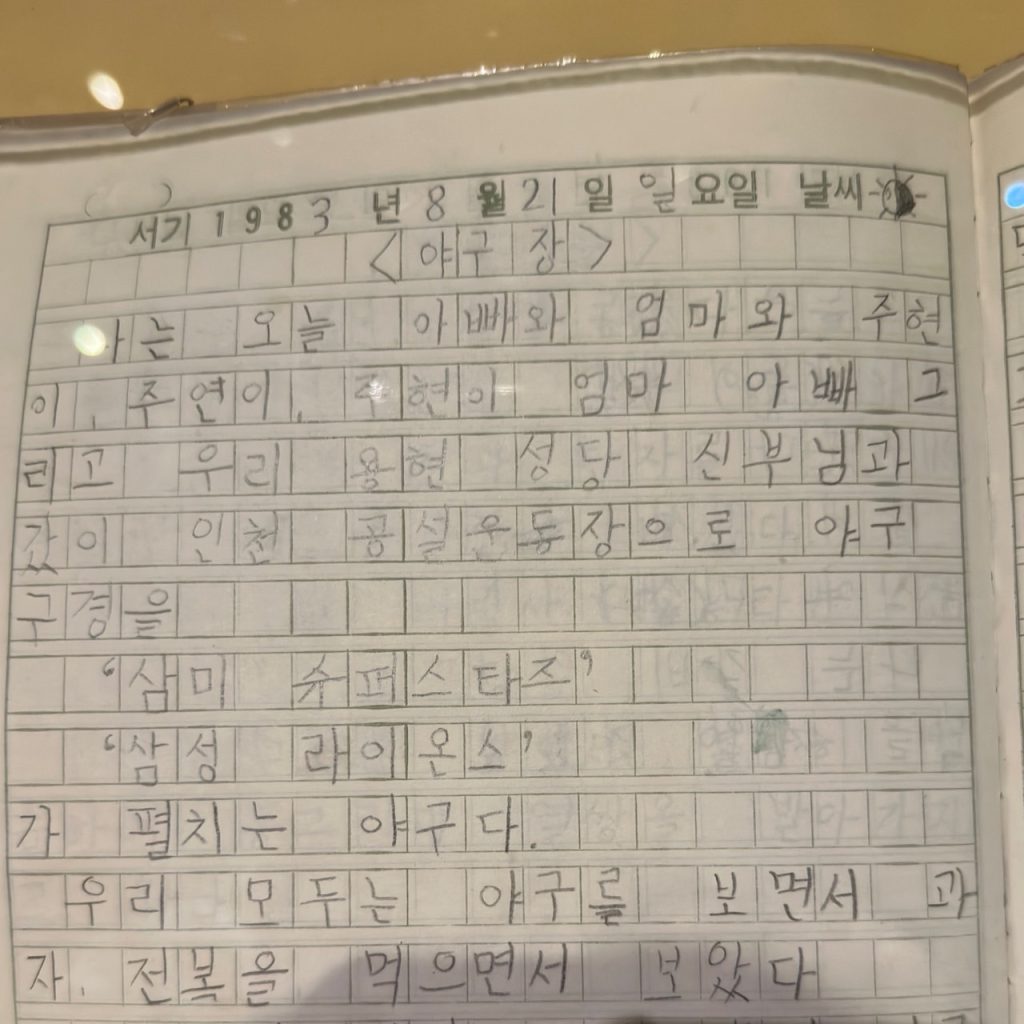 서기 1983 년 8 월 21 일 일 요일 날씨
<야구 장>
나는 오늘 아빠와 엄마와 주현
이, 주연이, 주현이 엄마 아빠 그
리고 우리 용현 성당 신부님과
갔이 인천 공설운동장으로 야구
구경을
'삼미 슈퍼스타즈'
'삼성 라이온스'
가 펼치는 야구다.
우리 모두는 야구를 보면서 과
자, 전복을 먹으면서 보았다